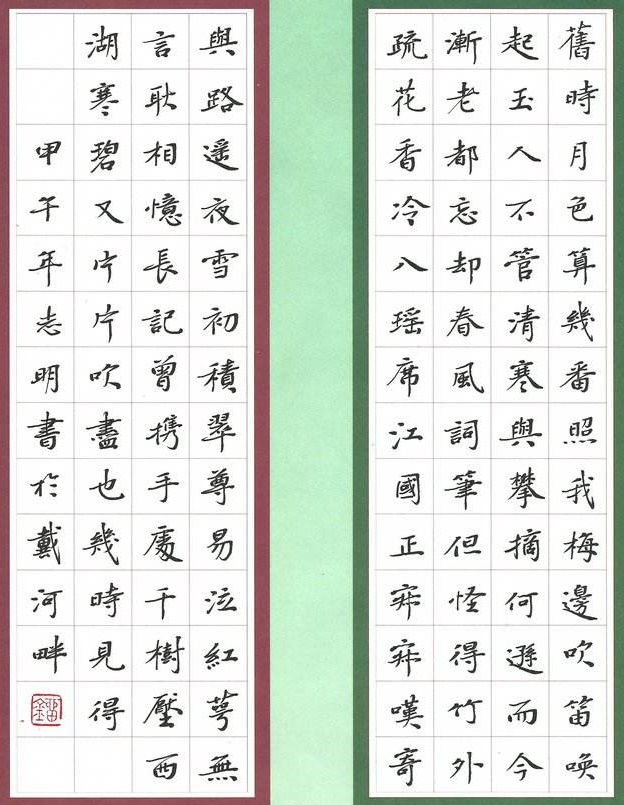 舊時月色算幾番照我梅邊吹笛喚
起玉人不管清寒與攀摘何遜而今
漸老都忘却春風詞筆但怪得竹外
疏花香冷入瑶席江國正寂寂嘆寄
與路遥夜雪初積翠尊易泣紅萼無
言耿相憶長記曾携手處千樹壓西
湖寒碧又片片吹盡也幾時見得
甲午年志明書於戴河畔